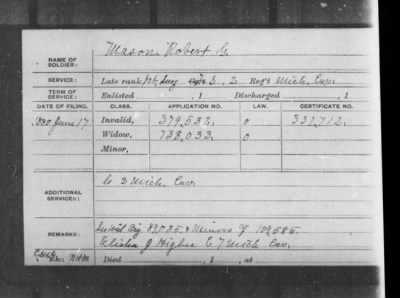 NAME OF SOLDIER: Mason, Robert G.
SERVICE: Late rank, 1st Serg Co. 3, 2 Reg't Mich. Cav.
TERM OF SERVICE: Enlisted , 1 Discharged , 1
DATE OF FILING. CLASS. APPLICATION NO. LAW. CERTIFICATE NO.
1880 June 17 Invalid, 379,582. 0 331,712.
Widow, 738,033. 0
Minor,
ADDITIONAL SERVICES: Mich. Cav.
REMARKS: & Minors of 109,585.
J. Higbee C 7 Mich Cav.
Died , 1 , at